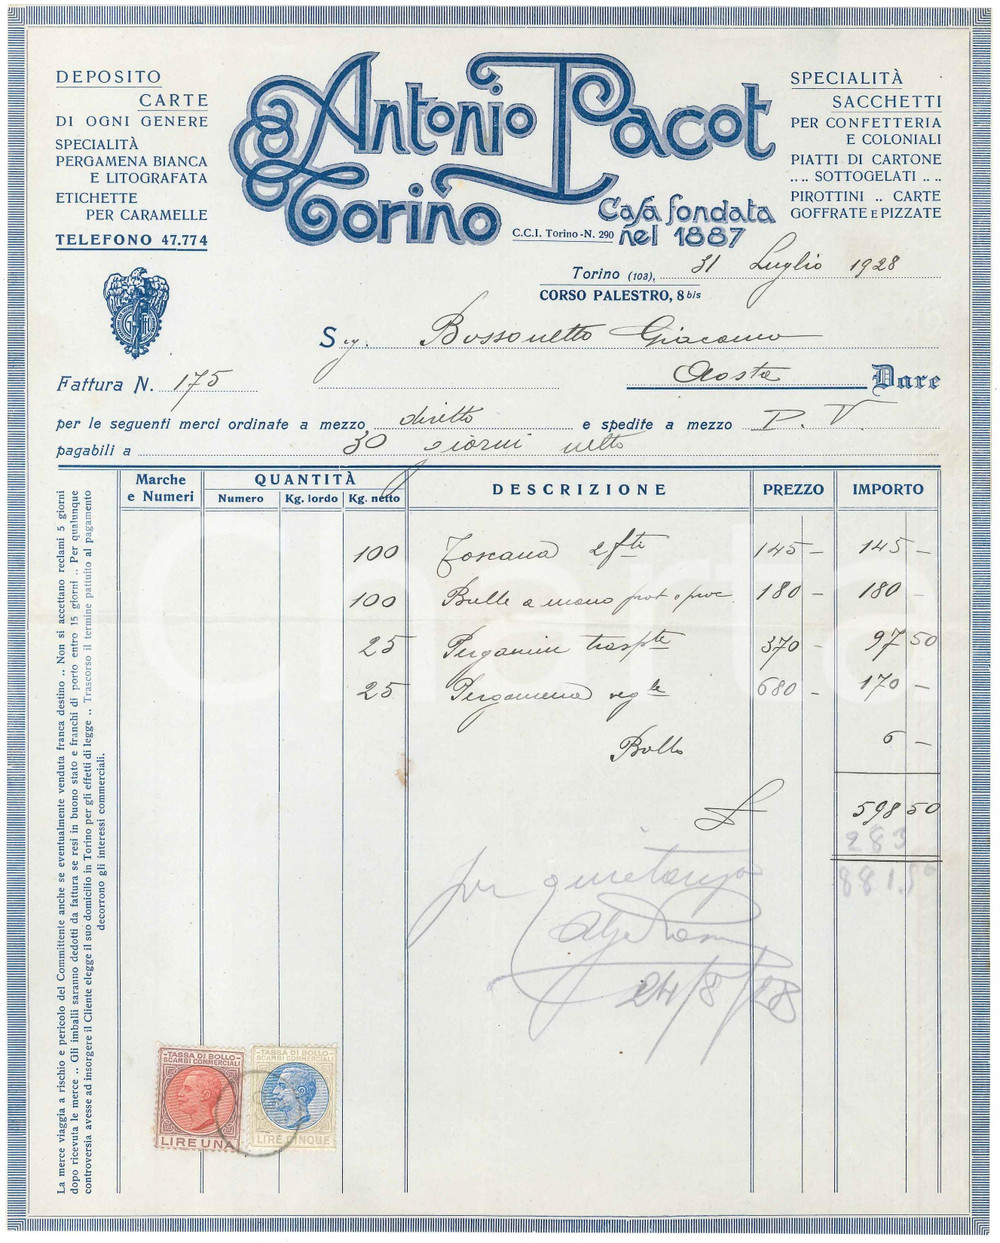 DEPOSITO
CARTE
DI OGNI GENERE
SPECIALITÀ
PERGAMENA BIANCA
E LITOGRAFATA
ETICHETTE
PER CARAMELLE
TELEFONO 47.774
Antonio Pacot
Torino
Casa fondata
nel 1887
C.C.I. Torino - N. 290
SPECIALITÀ
SACCHETTI
PER CONFETTERIA
E COLONIALI
PIATTI DI CARTONE
.. .. SOTTOGELATI .. ..
PIROTTINI .. CARTE
GOFFRATE E PIZZATE
Torino (103), 31 Luglio 1928
CORSO PALESTRO, 8 bis
Sig. Bossonetto Giacomo
Aosta Dare
Fattura N. 175
per le seguenti merci ordinate a mezzo diretto e spedite a mezzo P. V.
pagabili a 30 giorni netto
Marche e Numeri QUANTITÀ DESCRIZIONE PREZZO IMPORTO
Numero Kg. lordo Kg. netto
100 Toscana 2 fte 145 - 145 -
100 Bulle a mano 180 - 180 -
25 Pergamin traspte 370 - 97 50
25 Pergamena 680 - 170 -
Bollo 6 -
£ 598 50
283
881.50
per quietanza
24/8/28
TASSA DI BOLLO
SCAMBI COMMERCIALI
LIRE UNA
TASSA DI BOLLO
SCAMBI COMMERCIALI
LIRE CINQUE
La merce viaggia a rischio e pericolo del Committente anche se eventualmente venduta franca destino .. Non si accettano reclami 5 giorni
dopo ricevuta le merce .. Gli imballi saranno dedotti da fattura se resi in buono stato e franchi di porto entro 15 giorni .. Per qualunque
controversia avesse ad insorgere il Cliente elegge il suo domicilio in Torino per gli effetti di legge .. Trascorso il termine pattuito al pagamento
decorrono gli interessi commerciali.
Charta